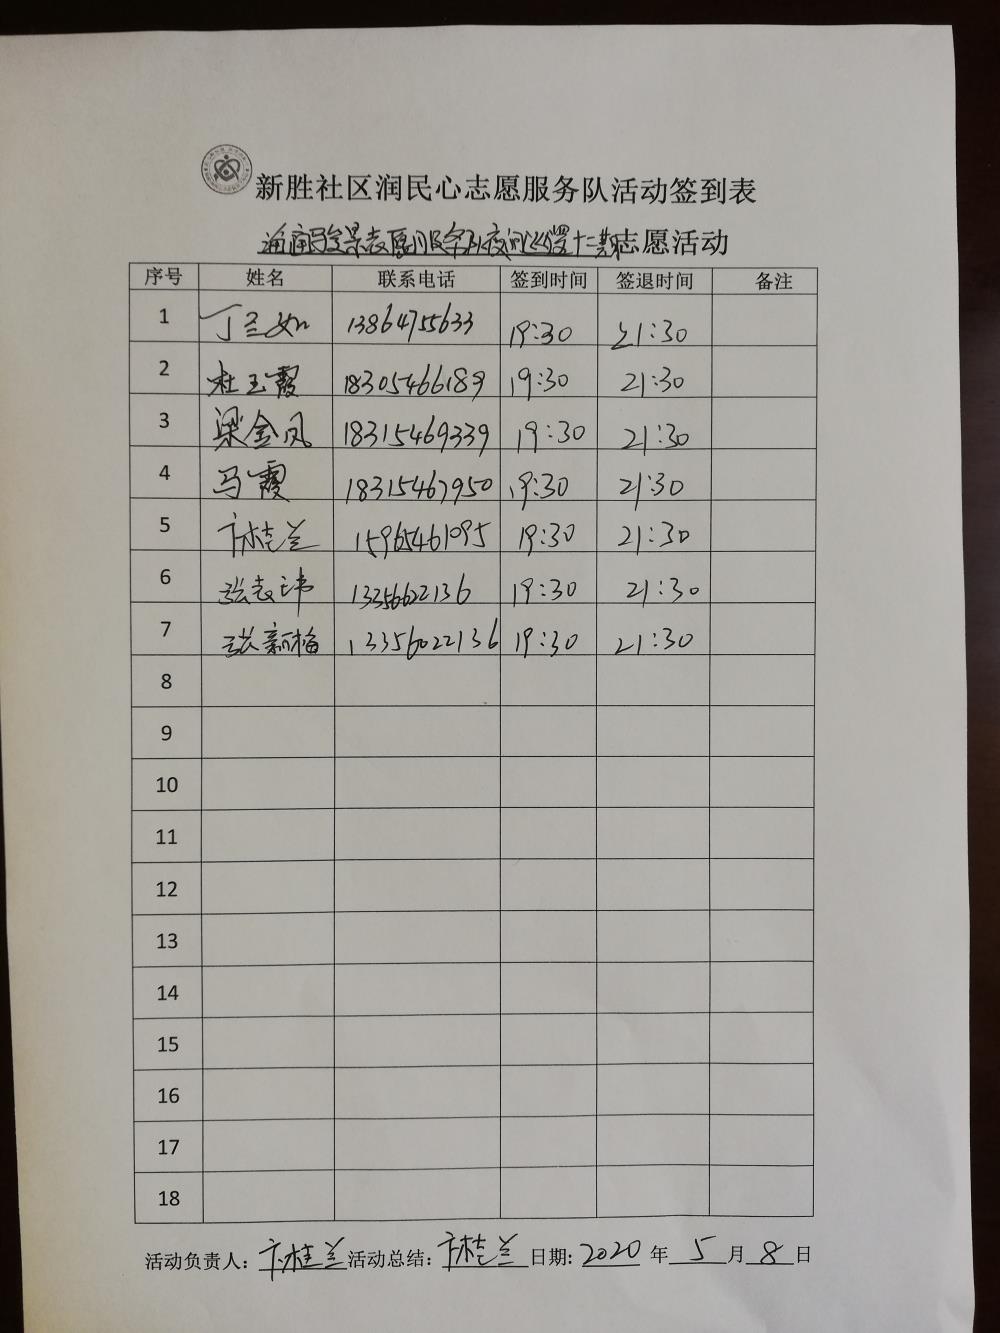 新胜社区润民心志愿服务队活动签到表
景志愿服务队夜间巡逻十二期志愿活动
序号 姓名 联系电话 签到时间 签退时间 备注
1 丁兰如 13864755633 19:30 21:30
2 杜玉霞 18305466189 19:30 21:30
3 梁金凤 18315469339 19:30 21:30
4 马霞 18315467950 19:30 21:30
5 卞桂兰 15965461095 19:30 21:30
6 张志玮 13356622136 19:30 21:30
7 张新梅 13356022136 19:30 21:30
8
9
10
11
12
13
14
15
16
17
18
活动负责人: 卞桂兰 活动总结: 卞桂兰 日期: 2020 年 5 月 8 日